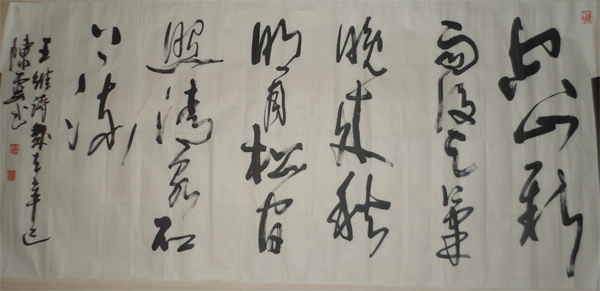 空山新
雨後天氣
晚來秋
明月松間
照清泉石
上流
王維詩歲在辛巳
陳書